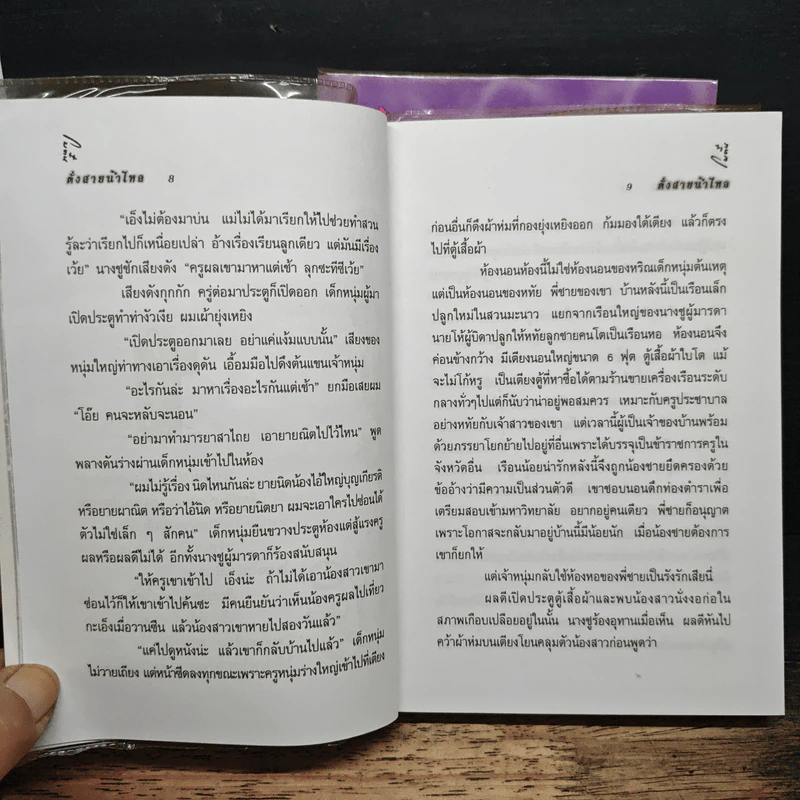 ดั่งสายน้ำไหล 8
“เอ็งไม่ต้องมาบ่น แม่ไม่ได้มาเรียกให้ไปช่วยทำสวน
รู้ละว่าเรียกไปก็เหนื่อยเปล่า อ้างเรื่องเรียนลูกเดียว แต่มันมีเรื่อง
เว้ย” นางชูชักเสียงดัง “ครูผลเขามาหาแต่เช้า ลุกซะทีซีเว้ย”
เสียงดังกุกกัก ครู่ต่อมาประตูก็เปิดออก เด็กหนุ่มผู้มา
เปิดประตูทำท่างัวเงีย ผมเผ้ายุ่งเหยิง
“เปิดประตูออกมาเลย อย่าแค่แง้มแบบนั้น” เสียงของ
หนุ่มใหญ่ท่าทางเอาเรื่องดุดัน เอื้อมมือไปดึงต้นแขนเจ้าหนุ่ม
“อะไรกันล่ะ มาหาเรื่องอะไรกันแต่เช้า” ยกมือเสยผม
“โอ๊ย คนจะหลับจะนอน”
“อย่ามาทำมารยาสาไถย เอายายณิตไปไว้ไหน” พูด
พลางดันร่างผ่านเด็กหนุ่มเข้าไปในห้อง
“ผมไม่รู้เรื่อง นิดไหนกันล่ะ ยายนิดน้องไอ้ใหญ่บุญเกียรติ
หรือยายผาณิต หรือว่าไอ้นิด หรือยายนิตยา ผมจะเอาใครไปซ่อนได้
ตัวไม่ใช่เล็ก ๆ สักคน” เด็กหนุ่มยืนขวางประตูห้องแต่สู้แรงครู
ผลหรือผลดีไม่ได้ อีกทั้งนางชูผู้มารดาก็ร้องสนับสนุน
“ให้ครูเขาเข้าไป เอ็งน่ะ ถ้าไม่ได้เอาน้องสาวเขามา
ซ่อนไว้ก็ให้เขาเข้าไปค้นซะ มีคนยืนยันว่าเห็นน้องครูผลไปเที่ยว
กะเอ็งเมื่อวานซืน แล้วน้องสาวเขาหายไปสองวันแล้ว”
“แค่ไปดูหนังน่ะ แล้วเขาก็กลับบ้านไปแล้ว” เด็กหนุ่ม
ไม่วายเถียง แต่หน้าซีดลงทุกขณะเพราะครูหนุ่มร่างใหญ่เข้าไปที่เตียง
9 ดั่งสายน้ำไหล
ก่อนอื่นก็ดึงผ้าห่มที่กองยุ่งเหยิงออก ก้มมองใต้เตียง แล้วก็ตรง
ไปที่ตู้เสื้อผ้า
ห้องนอนห้องนี้ไม่ใช่ห้องนอนของหริณเด็กหนุ่มต้นเหตุ
แต่เป็นห้องนอนของหทัย พี่ชายของเขา บ้านหลังนี้เป็นเรือนเล็ก
ปลูกใหม่ในสวนมะนาว แยกจากเรือนใหญ่ของนางชูผู้มารดา
นายโห้ผู้บิดาปลูกให้หทัยลูกชายคนโตเป็นเรือนหอ ห้องนอนจึง
ค่อนข้างกว้าง มีเตียงนอนใหญ่ขนาด 6 ฟุต ตู้เสื้อผ้าใบโต แม้
จะไม่โก้หรู เป็นเตียงตู้ที่หาซื้อได้ตามร้านขายเครื่องเรือนระดับ
กลางทั่วๆไปแต่ก็นับว่าน่าอยู่พอสมควร เหมาะกับครูประชาบาล
อย่างหทัยกับเจ้าสาวของเขา แต่เวลานี้ผู้เป็นเจ้าของบ้านพร้อม
ด้วยภรรยาโยกย้ายไปอยู่ที่อื่นเพราะได้บรรจุเป็นข้าราชการครูใน
จังหวัดอื่น เรือนน้อยน่ารักหลังนี้จึงถูกน้องชายยึดครองด้วย
ข้ออ้างว่ามีความเป็นส่วนตัวดี เขาชอบนอนดึกท่องตำราเพื่อ
เตรียมสอบเข้ามหาวิทยาลัย อยากอยู่คนเดียว พี่ชายก็อนุญาต
เพราะโอกาสจะกลับมาอยู่บ้านนี้มีน้อยนัก เมื่อน้องชายต้องการ
เขาก็ยกให้
แต่เจ้าหนุ่มกลับใช้ห้องหอของพี่ชายเป็นรังรักเสียนี่
ผลดีเปิดประตูตู้เสื้อผ้าและพบน้องสาวนั่งงอก่อใน
สภาพเกือบเปลือยอยู่ในนั้น นางชูร้องอุทานเมื่อเห็น ผลดีหันไป
คว้าผ้าห่มบนเตียงโยนคลุมตัวน้องสาวก่อนพูดว่า